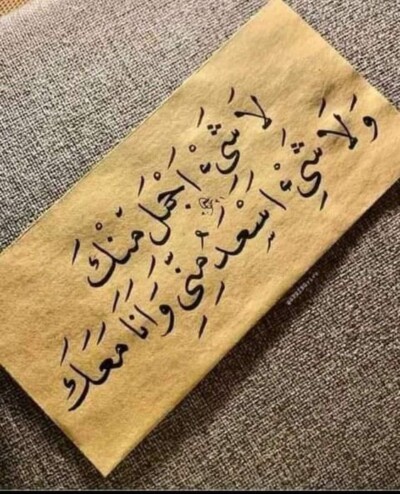 لَا شَيْءَ اَجْمَلَ مِّنْكَ
وَلَا شَيْءَ اَسْعَدِ مِّنِّي وَاَنَا مَعَكَ